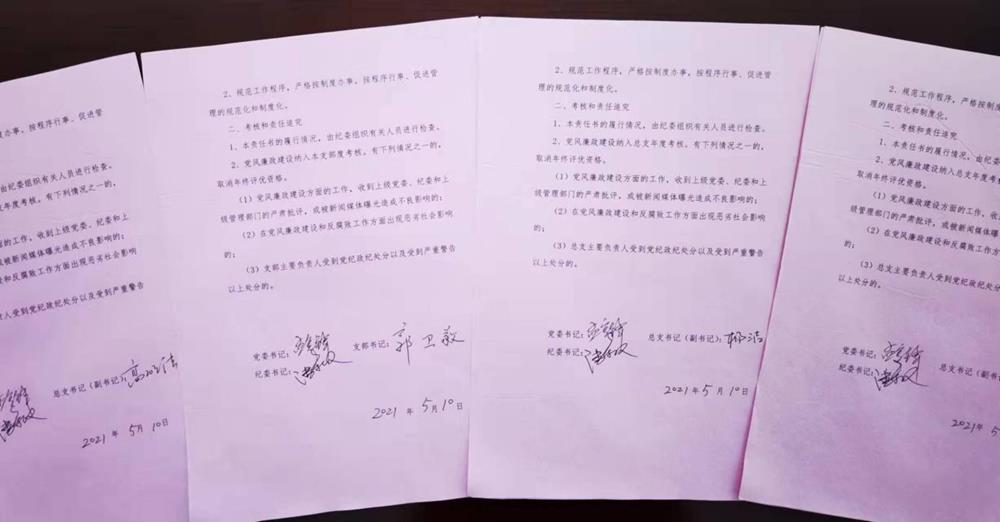 度办事，按程序行事、促进管
由纪委组织有关人员进行检查。
年度考核。有下列情况之一的，
的工作，收到上级党委、纪委和上
或被新闻媒体曝光造成不良影响的；
设和反腐败工作方面出现恶劣社会影响
责人受到党纪政纪处分以及受到严重警告
总支书记（副书记）：
2021 年 5月 10日
2、规范工作程序，严格按制度办事，按程序行事、促进管
理的规范化和制度化。
二、考核和责任追究
1、本责任书的履行情况，由纪委组织有关人员进行检查。
2、党风廉政建设纳入本支部年度考核。有下列情况之一的，
取消年终评优资格。
（1）党风廉政建设方面的工作，收到上级党委、纪委和上
级管理部门的严肃批评，或被新闻媒体曝光造成不良影响的；
（2）在党风廉政建设和反腐败工作方面出现恶劣社会影响
的；
（3）支部主要负责人受到党纪政纪处分以及受到严重警告
以上处分的。
党委书记： 支部书记：郭卫敏
纪委书记：
2021 年 5月10日
2、规范工作程序，严格按制度办事，按程序行事、促进管
理的规范化和制度化。
二、考核和责任追究
1、本责任书的履行情况，由纪委组织有关人员进行检查。
2、党风廉政建设纳入总支年度考核。有下列情况之一的，
取消年终评优资格。
（1）党风廉政建设方面的工作，收到上级党委、纪委和上
级管理部门的严肃批评，或被新闻媒体曝光造成不良影响的；
（2）在党风廉政建设和反腐败工作方面出现恶劣社会影响
的；
（3）总支主要负责人受到党纪政纪处分以及受到严重警告
以上处分的。
党委书记： 总支书记（副书记）：杨洁
纪委书记：
2021年 5月10日
2、规范工作程序，严格按制度
理的规范化和制度化。
二、考核和责任追究
1、本责任书的履行情况，由纪委
2、党风廉政建设纳入总支年度考核
取消年终评优资格。
（1）党风廉政建设方面的工作，
级管理部门的严肃批评，或被新闻
（2）在党风廉政建设和反腐
的；
（3）总支主要负责人受到
以上处分的。
党委书记： 总支书记
纪委书记：
2021年 5